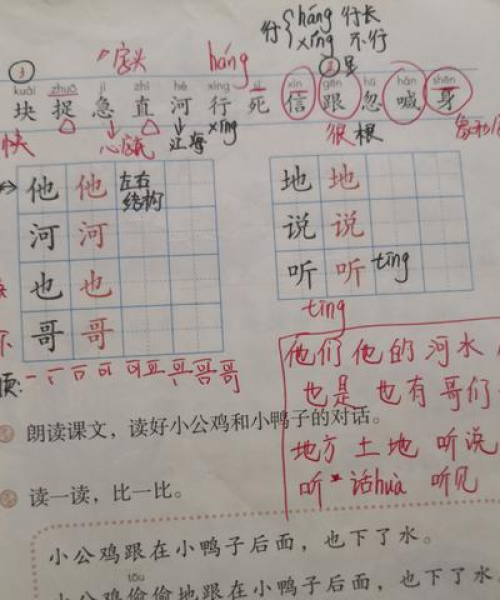 háng 行长
行
xíng 不行
字头 háng
kuài zhuō jí zhí hé xíng sǐ xìn gēn hū hǎn shēn
块 捉 急 直 河 行 死 信 跟 忽 喊 身
快 心底 江海 xíng 很 根
他 他 左右结构 地 地
河 河 说 说
也 也 听 听 tīng
哥 哥 tīng
他们 他的 河水
也是 也有 哥们
朗读课文，读好小公鸡和小鸭子的对话。
地方 土地 听说
读一读，比一比。
听 话huà 听见
小公鸡跟在小鸭子后面，也下了水。
tōu
小公鸡偷偷地跟在小鸭子后面，也下了水